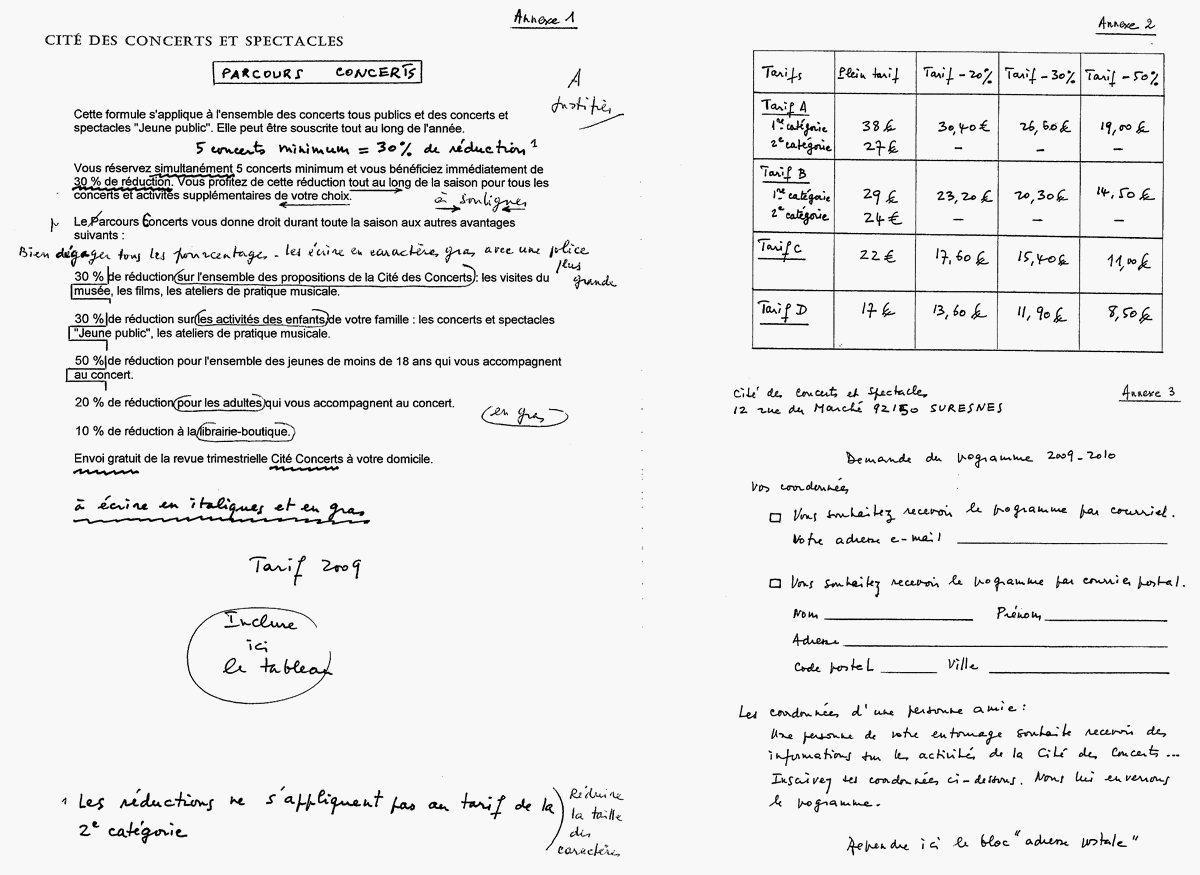 Annexe 1
CITÉ DES CONCERTS ET SPECTACLES
PARCOURS CONCERTS
A
justifier
Cette formule s'applique à l'ensemble des concerts tous publics et des concerts et
spectacles "Jeune public". Elle peut être souscrite tout au long de l'année.
5 concerts minimum = 30% de réduction 1
Vous réservez simultanément 5 concerts minimum et vous bénéficiez immédiatement de
30 % de réduction. Vous profitez de cette réduction tout au long de la saison pour tous les
concerts et activités supplémentaires de votre choix.
à souligner
p Le Parcours Concerts vous donne droit durant toute la saison aux autres avantages
suivants :
Bien dégager tous les pourcentages - les écrire en caractères gras avec une police
plus
grande
30 % de réduction sur l'ensemble des propositions de la Cité des Concerts : les visites du
musée, les films, les ateliers de pratique musicale.
30 % de réduction sur les activités des enfants de votre famille : les concerts et spectacles
"Jeune public", les ateliers de pratique musicale.
50 % de réduction pour l'ensemble des jeunes de moins de 18 ans qui vous accompagnent
au concert.
20 % de réduction pour les adultes qui vous accompagnent au concert.
(en gras)
10 % de réduction à la librairie-boutique.
Envoi gratuit de la revue trimestrielle Cité Concerts à votre domicile.
à écrire en italiques et en gras
Tarif 2009
Inclure
ici
le tableau
1 Les réductions ne s'appliquent pas au tarif de la
2e catégorie
Réduire
la taille
des
caractères
Annexe 2
Tarifs Plein tarif Tarif -20% Tarif -30% Tarif -50%
Tarif A
1re catégorie 38 € 30,40 € 26,60 € 19,00 €
2e catégorie 27 € - - -
Tarif B
1re catégorie 29 € 23,20 € 20,30 € 14,50 €
2e catégorie 24 € - - -
Tarif C 22 € 17,60 € 15,40 € 11,00 €
Tarif D 17 € 13,60 € 11,90 € 8,50 €
Annexe 3
Cité des Concerts et Spectacles
12 rue du Marché 92150 SURESNES
Demande du programme 2009-2010
Vos coordonnées
Vous souhaitez recevoir le programme par courriel.
Votre adresse e-mail
Vous souhaitez recevoir le programme par courrier postal.
Nom Prénom
Adresse
Code postal Ville
Les coordonnées d'une personne amie :
Une personne de votre entourage souhaite recevoir des
informations sur les activités de la Cité des Concerts ...
Inscrivez ses coordonnées ci-dessous. Nous lui enverrons
le programme.
Reprendre ici le bloc "adresse postale"